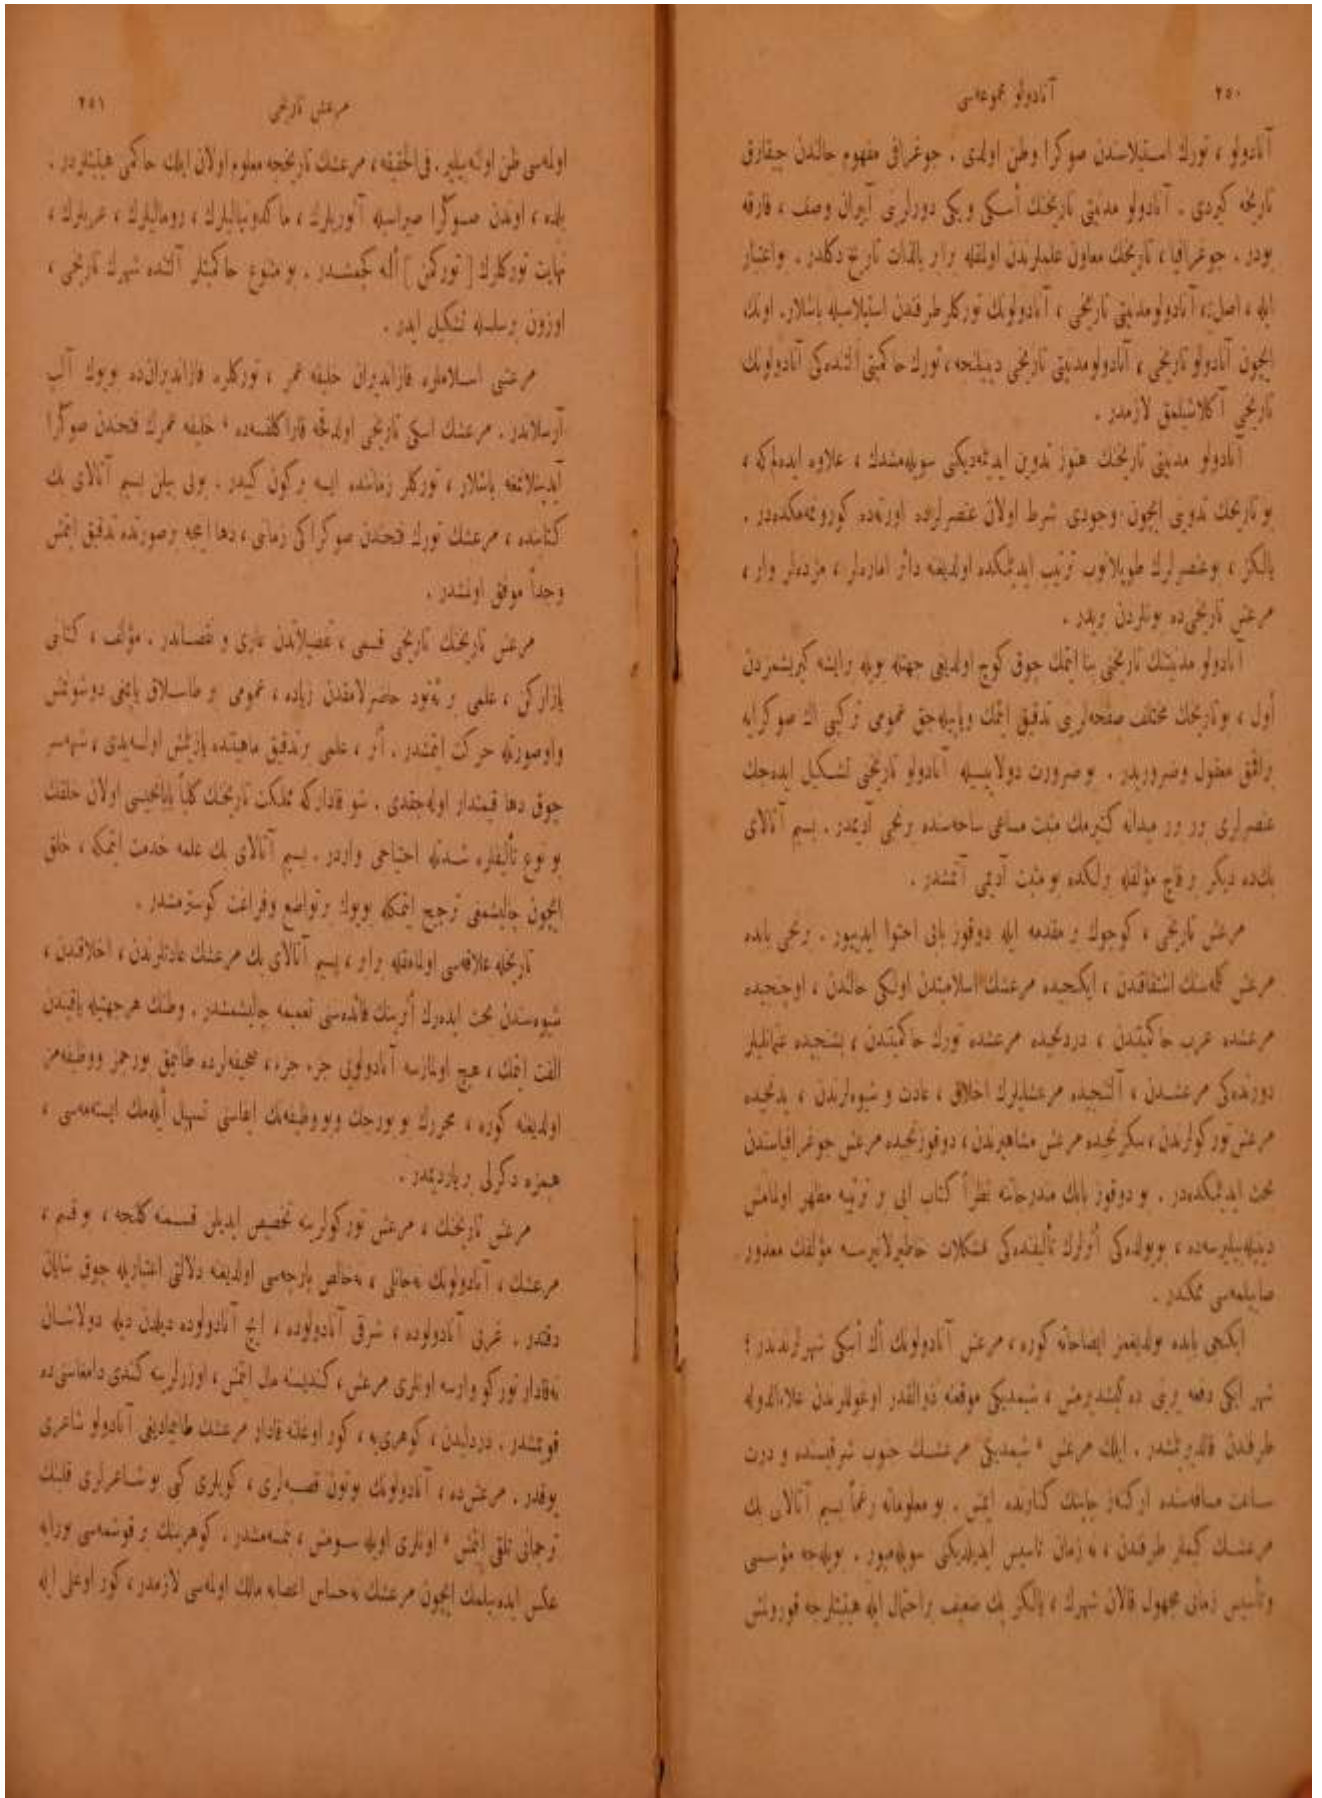 ٢٥٠
آنادولو مجموعه‌سی
آنادولو ، تورك استیلاسندن صوكرا وطن اولدی . جوغرافی مفهوم حالندن چیقارق
تاریخه كیردی . آنادولو مدنیتی تاریخنك أسكی و یكی دورلری آییران وصف ، فارقه
بودر . جوغرافیا ، تاریخك معاون علملرندن اولمقله برابر بالذات تاریخ دكلدر . بو اعتبار
ایله ، اصل آنادولو مدنیتی تاریخی ، آنادولونك توركلر طرفندن استیلاسیله باشلار. اونك
ایچون آنادولو تاریخی ، آنادولو مدنیتی تاریخی دیینلجه ، تورك حاكمیتی آلتنده‌كی آنادولونك
تاریخی آكلاشیلمق لازمدر .
آنادولو مدنیتی تاریخنك هنوز تدوین ایدیلمه‌دیكنی سویله‌مشدك ، علاوه ایده‌لم كه ،
بو تاریخك تدوینی ایچون وجودی شرط اولان عنصرلرده اورته‌ده كورونمه‌مكده‌در .
یالكز ، بو عنصرلرك طوپلانوب ترتیب ایدیلمكده اولدیغنه دائر اماره‌لر ، مژده‌لر وار ،
مرعش تاریخی ده بونلردن بریدر .
آنادولو مدنیتنك تاریخنی بنا ایتمك چوق كوچ اولدیغی جهتله بویله بر ایشه كیریشمزدن
أول ، بو تاریخك مختلف صفحه‌لرینی تدقیق ایتمك و یاپیله‌جق عمومی تركیبی اك صوكرایه
براقمق معقول و ضروریدر . بو ضرورت دولاییسیله آنادولو تاریخنی تشكیل ایده‌جك
عنصرلری بر بر میدانه كتیرمك مثبت مساعی ساحه‌سنده برنجی آدیمدر . بسیم آتالای
بك ده دیكر بر قاچ مؤلفله برلكده بو مثبت آدیمی آتمشدر .
مرعش تاریخی ، كوچوك بر مقدمه ایله دوقوز بابی احتوا ایدییور . برنجی بابده
مرعش كلمه‌سنك اشتقاقندن ، ایكنجیده مرعشك اسلامیتدن اولكی حالندن ، اوچنجیده
مرعشده عرب حاكمیتندن ، دردنجیده مرعشده تورك حاكمیتندن ، بشنجیده عثمانلیلر
دورنده‌كی مرعشدن ، آلتنجیده مرعشلیلرك اخلاق ، عادت و شیوه‌لرندن ، یدنجیده
مرعش توركولرندن ، سكزنجیده مرعش مشاهیرندن ، دوقوزنجیده مرعش جوغرافیاسندن
بحث ایدیلمكده‌در . بو دوقوز بابك مندرجاتنه نظراً كتاب ایی بر ترتیبه مظهر اولمامش
دینیله‌بیلیرسه‌ده ، بو یولده‌كی أثرلرك تألیفنده‌كی مشكلات خاطیرلانیرسه مؤلفك معذور
صاییلمه‌سی ممكندر .
ایكنجی بابده بولدیغمز ایضاحاته كوره ، مرعش آنادولونك اك أسكی شهرلرندندر ؛
شهر ایكی دفعه یرینی ده‌كیشدیرمش ، شیمدیكی موقعنه ذوالقدر اوغوللرندن علاءالدوله
طرفندن قالدیرلمشدر . ایلك مرعش شیمدیكی مرعشك جنوب شرقیسنده و درت
ساعت مسافه‌سنده اركنز چایینك كنارنده ایمش . بو معلوماته رغماً بسیم آتالای بك
مرعشك كیملر طرفندن ، نه زمان تأسیس ایدیلدیكنی سویله‌میور . بویله‌جه مؤسسی
و تأسیس زمانی مجهول قالان شهرك ، یالكز پك ضعیف بر احتمال ایله هیتیتلرجه قورولمش
مرعش تاریخی
٢٥١
اولمه‌سی ظن اولنه‌بیلیر . فی‌الحقیقه ، مرعشك تاریخجه معلوم اولان ایلك حاكمی هیتیتلردر .
بلده ، اوندن صوكرا صیراسیله آثوریلرك ، ماكدونیالیلرك ، رومالیلرك ، عربلرك ،
نهایت توركلرك [ توركمن ] ألنه كچمشدر . بو متنوع حاكمیتلر آلتنده شهرك تاریخی ،
اوزون بر سلسله تشكیل ایدر .
مرعشی اسلاملره قازاندیران خلیفه عمر ، توركلره قازاندیران‌ده بویوك آلپ
آرسلاندر . مرعشك اسكی تاریخی اولدقجه قاراكلقسه‌ده خلیفه عمرك فتحندن صوكرا
آیدینلانمغه باشلار ، توركلر زماننده ایسه بر كون كیدر . بونی بیلن بسیم آتالای بك
كتابنده ، مرعشك تورك فتحندن صوكراكی زمانی ، دها اینجه بر صورتده تدقیق ایتمش
و جداً موفق اولمشدر .
مرعش تاریخنك تاریخی قسمی ، تفصیلاتدن عاری و نقصاندر . مؤلف ، كتابی
یازاركن ، علمی بر ئه‌تود حاضرلامقدن زیاده ، عمومی بر طاسلاق یاپمغی دوشونمش
و او صورتله حركت ایتمشدر . أثر ، علمی بر تدقیق ماهیتنده یازیلمش اولسه‌یدی ، شبهه‌سز
چوق دها قیمتدار اوله‌جقدی . شو قادار كه مملكت تاریخنك كلیاً یابانجیسی اولان خلقك
بو نوع تألیفلره شدتله احتیاجی واردر . بسیم آتالای بك علمه خدمت ایتمكه ، خلق
ایچون چالیشمغی ترجیح ایتمكله بویوك بر تواضع و فراغت كوسترمشدر .
تاریخله علاقه‌سی اولمامقله برابر ، بسیم آتالای بك مرعشك عادتلرندن ، اخلاقندن ،
شیوه‌سندن بحث ایده‌رك أثرینك فائده‌سنی تعمیمه چالیشمشدر . وطنك هر جهتیله یاقیندن
الفت ایتمك ، هیچ اولمازسه آنادولویی جزء جزء ، صحیفه‌لرده طانیمق بورجمز و وظیفه‌مز
اولدیغنه كوره ، محررك بو بورجك و بو وظیفه‌نك ایفاسنی تسهیل أیله‌مك ایسته‌مه‌سی ،
هپمزه دكرلی بر یاردیمدر .
مرعش تاریخنك ، مرعش توركولرینه تخصیص ایدیلن قسمنه كلنجه ، بو قسم ،
مرعشك ، آنادولونك نه جانلی ، نه خالص پارچه‌سی اولدیغنه دلالتی اعتباریله چوق شایان
دقتدر . غربی آنادولوده ، شرقی آنادولوده ، ایچ آنادولوده دیلدن دیله دولاشان
نه قادار توركو وارسه اونلری مرعش ، كندیسنه مال ایتمش ، اوزرلرینه كندی دامغاسنی ده
قویمشدر . دردلیدن ، كوهری‌یه ، كور اوغلنه قادار مرعشك طانیمادیغی آنادولو شاعری
یوقدر . مرعش‌ده ، آنادولونك بوتون قصبه‌لری ، كویلری كبی بو شاعرلری قلبنك
ترجمانی تلقی ایتمش اونلری اویله سومش ، بنمسه‌مشدر . كوهرینك بر قوشمه‌سی بورایه
عكس ایده‌بیلمك ایچون مرعشك نه حساس اعصابه مالك اولمه‌سی لازمدر ، كور اوغلی ایله